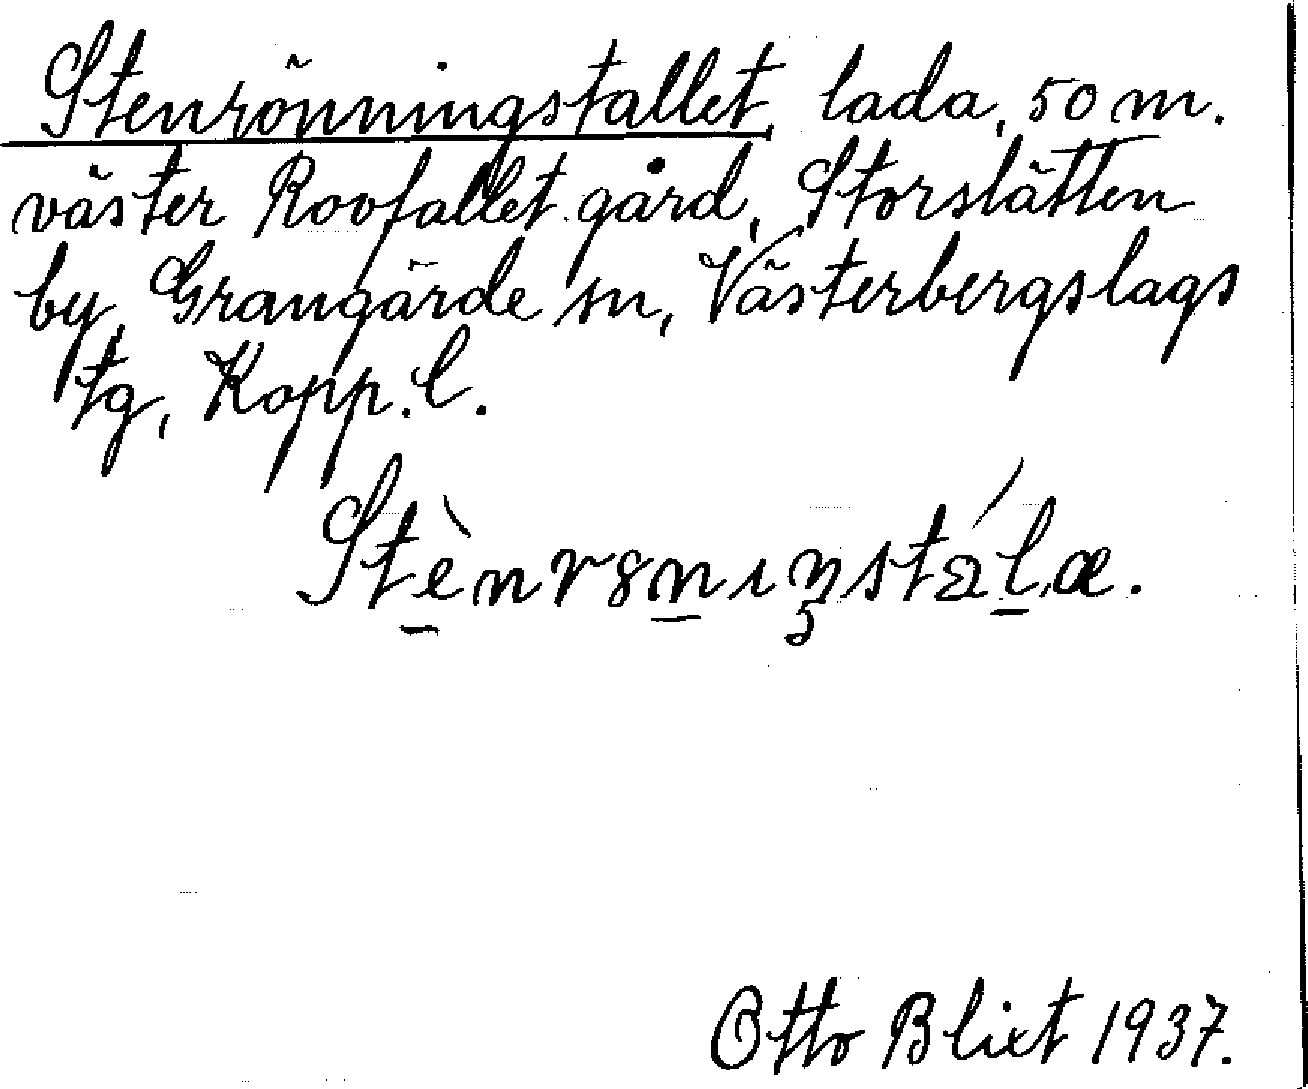 Stenrönningstallet, lada, 50 m.
väster Rovfallet gård, Storslätten
by, Grangärde sn, Västerbergslags
tg, Kopp. l.
Stènrȣnıŋstálæ.
Otto Blixt 1937.